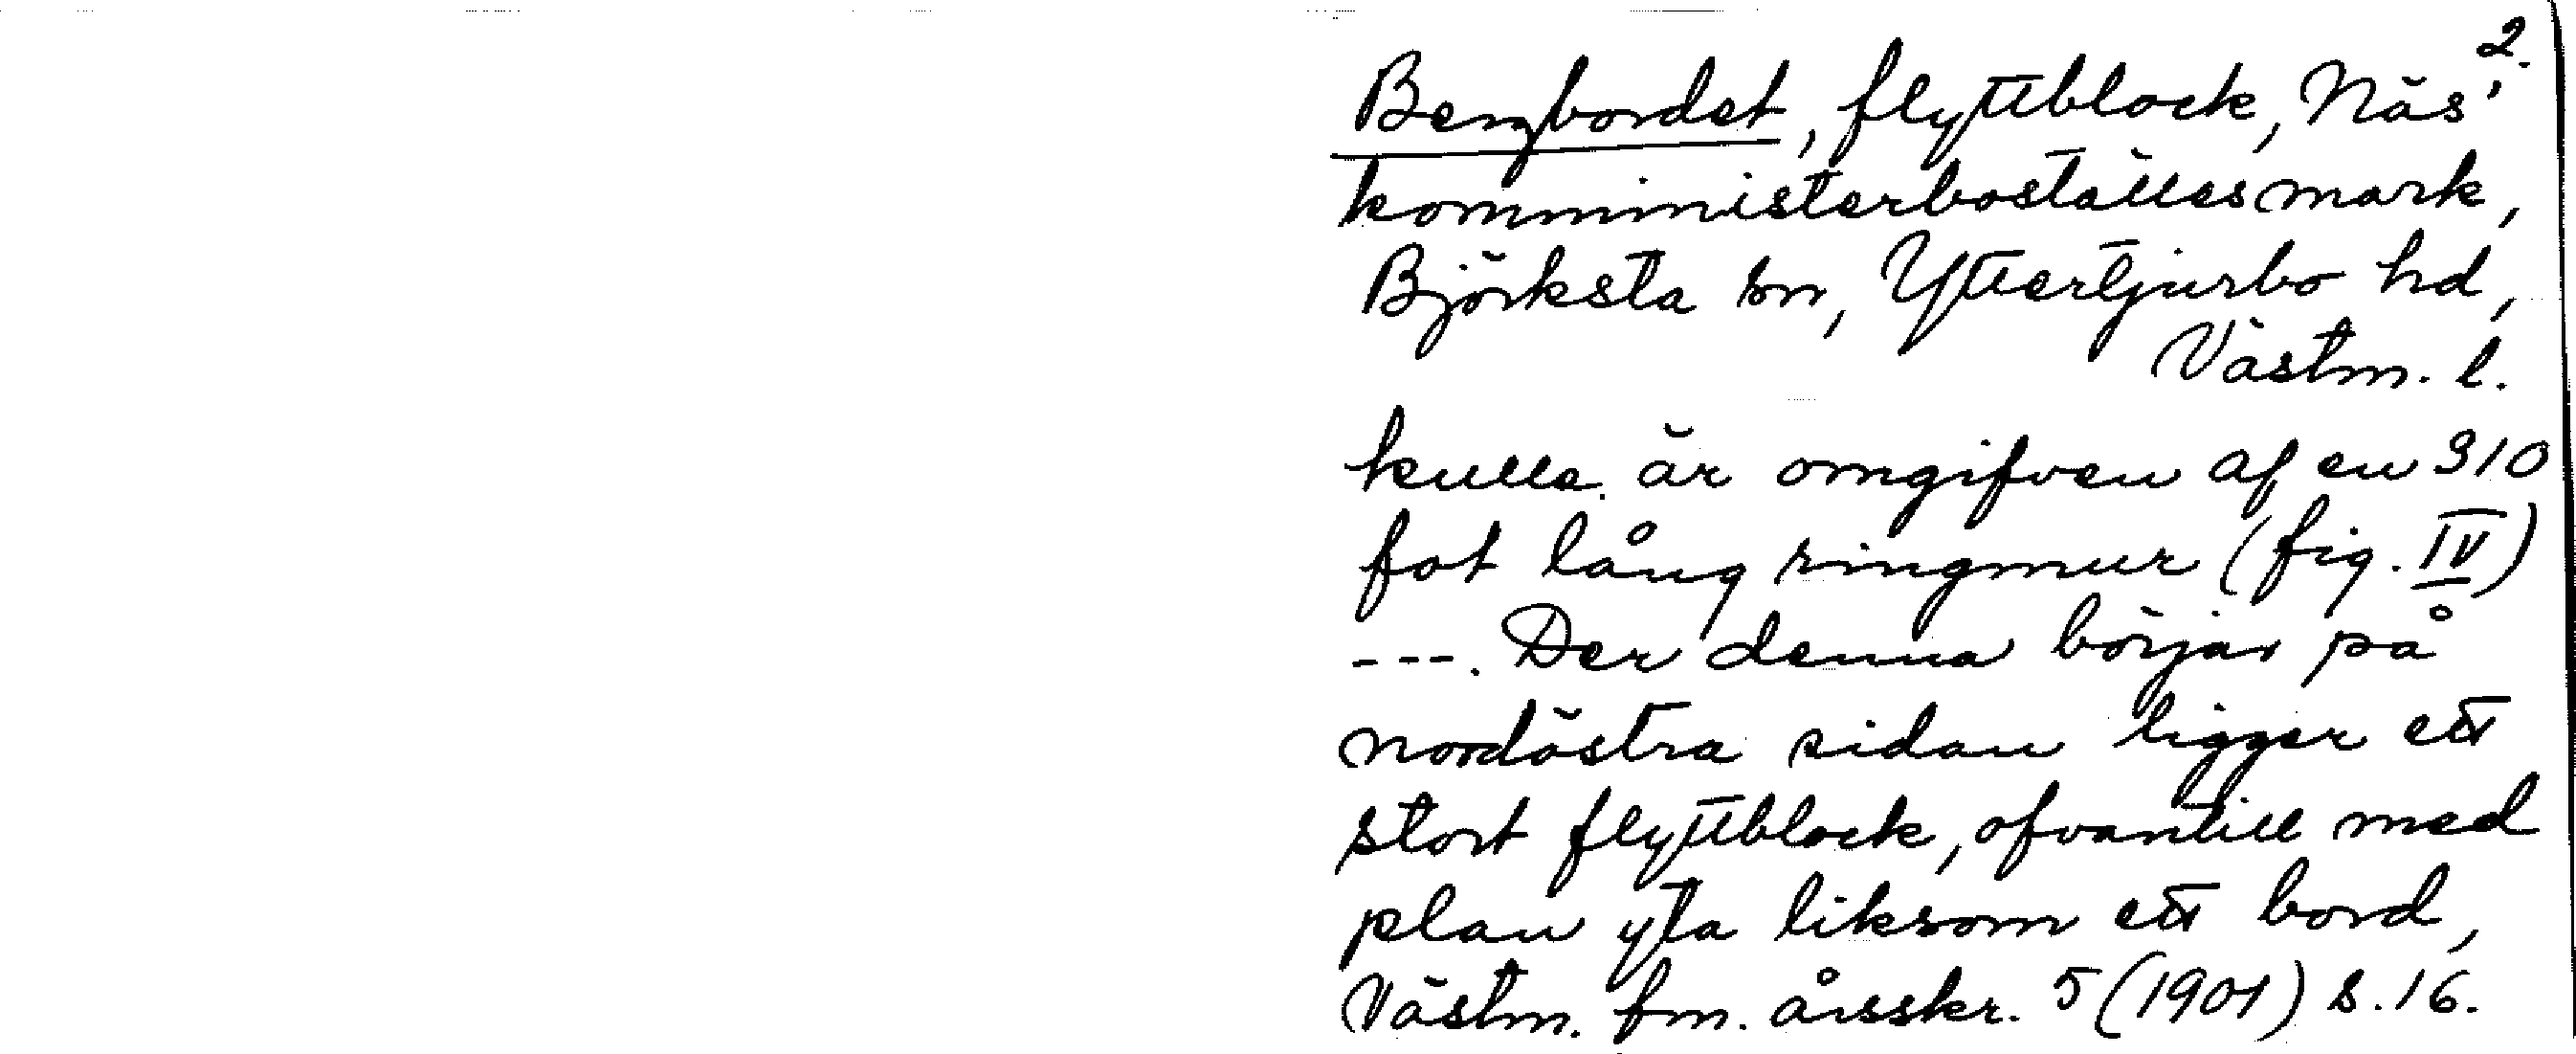 2.
Bergbordet, flyttblock, Näs'
komministerboställesmark,
Björksta sn, Yttertjurbo hd,
Västm. l.
kulle är omgifven af en 310
fot lång ringmur (fig. IV)
---. Der denna börjar på
nordöstra sidan ligger ett
stort flyttblock, ofvantill med
plan yta liksom ett bord,
Västm. fm. årsskr. 5 (1901) s. 16.